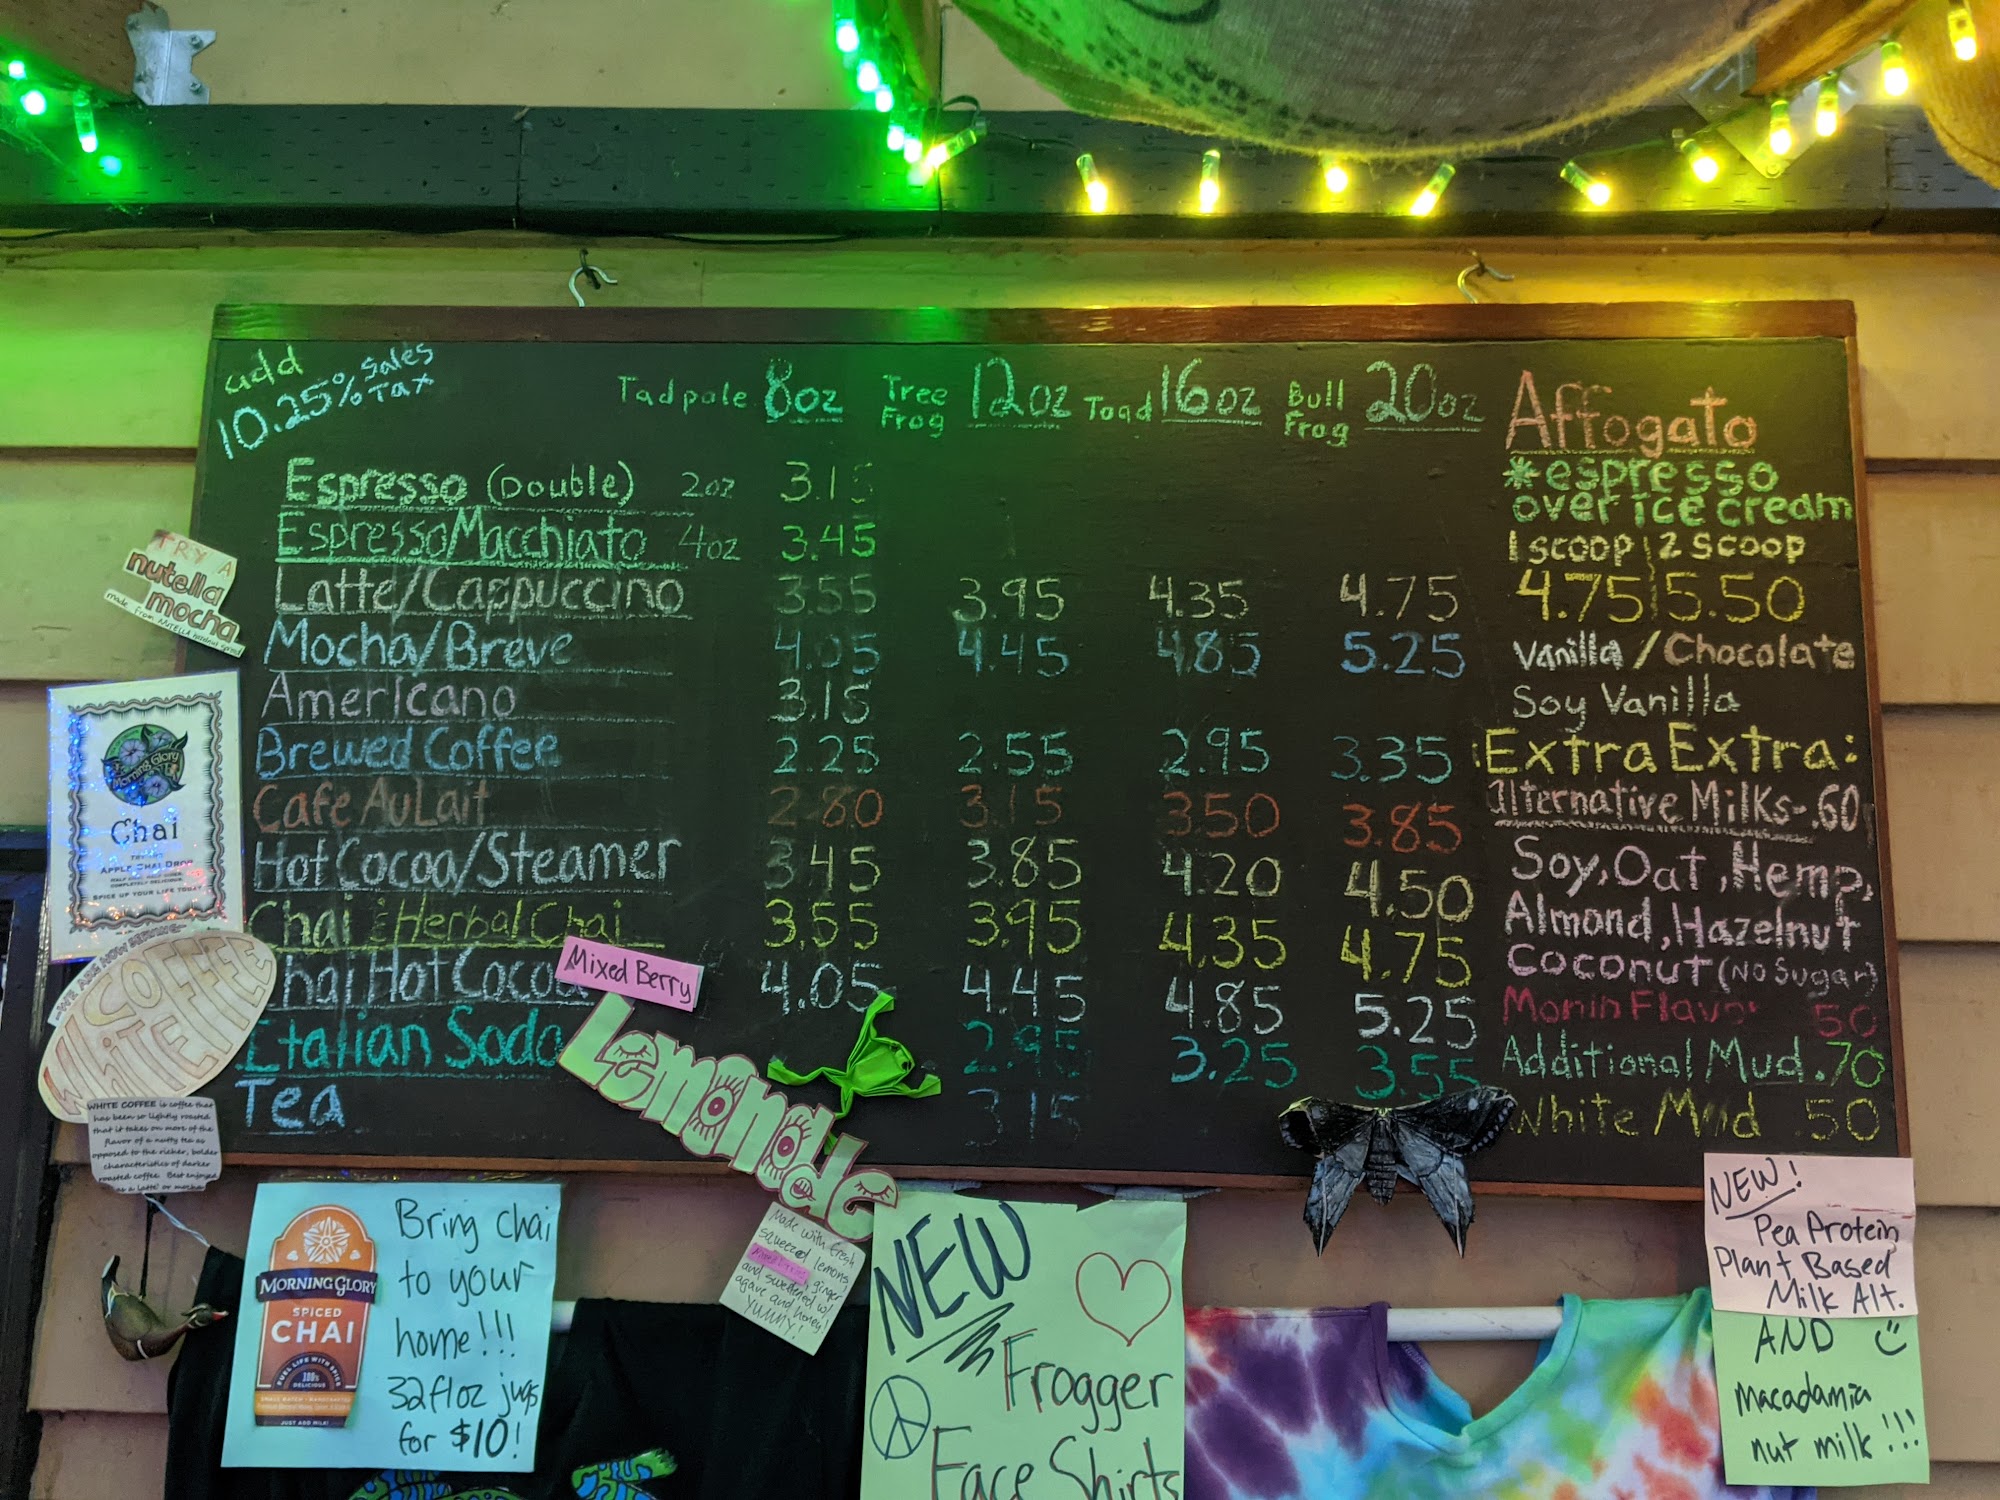 add
10.25% Sales
Tax
Tadpole 8oz Tree Frog 12oz Toad 16oz Bull Frog 20oz
Espresso (Double) 2oz 3.15
Espresso Macchiato 4oz 3.45
Latte/Cappuccino 3.55 3.95 4.35 4.75
Mocha/Breve 4.05 4.45 4.85 5.25
Americano 3.15
Brewed Coffee 2.25 2.55 2.95 3.35
Cafe Au Lait 2.80 3.15 3.50 3.85
Hot Cocoa/Steamer 3.45 3.85 4.20 4.50
Chai & Herbal Chai 3.55 3.95 4.35 4.75
Chai Hot Cocoa 4.05 4.45 4.85 5.25
Italian Soda 2.95 3.25 3.55
Tea 3.15
Affogato
*espresso
over ice cream
1 scoop | 2 scoop
4.75 | 5.50
Vanilla / Chocolate
Soy Vanilla
Extra Extra:
alternative Milks-.60
Soy, Oat, Hemp,
Almond, Hazelnut
Coconut (No Sugar)
Monin Flavor 50
Additional Mud .70
White Mud .50
TRY A
nutella
mocha
made from NUTELLA hazelnut spread
Morning Glory
Chai
APPLE CHAI DROP
COMPLETELY DELICIOUS.
SPICE UP YOUR LIFE TODAY
WE ARE NOW
WHITE
COFFEE
WHITE COFFEE is coffee that
has been so lightly roasted
that it takes on more of the
flavor of a nutty tea as
opposed to the richer, bolder
characteristics of darker
roasted coffee. Best enjoyed
as a latte' or mocha
Mixed Berry
Lemonade
Made with fresh
squeezed lemons,
ginger,
and sweetened w/
agave and honey!
YUMMY!
MORNING GLORY
SPICED
CHAI
FUEL LIFE WITH SPICE
100%
DELICIOUS
JUST ADD MILK!
Bring chai
to your
home!!!
32floz jugs
for $10!
NEW
Frogger
Face Shirts
NEW!
Pea Protein
Plant Based
Milk Alt.
AND
Macadamia
nut milk!!!